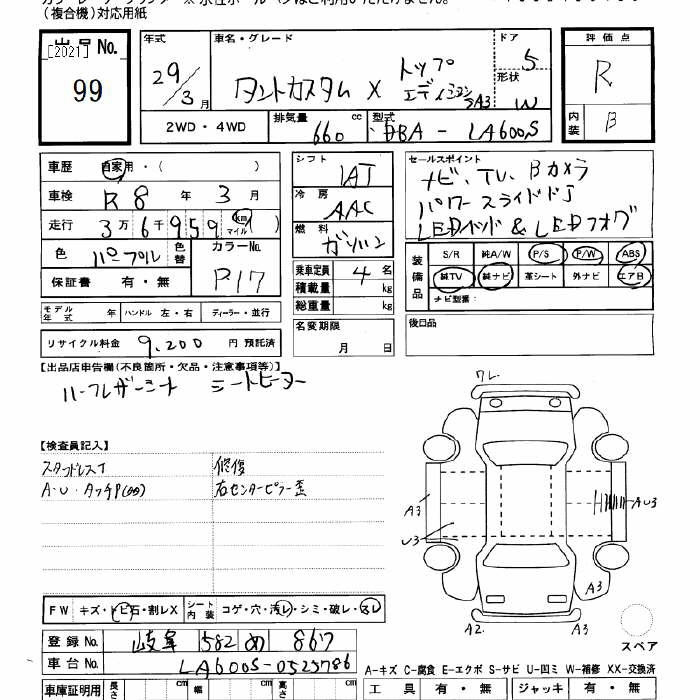 (複合機)対応用紙
出品 No.
[2021]
99
年式 車名・グレード ドア 評価点
29/3月 タントカスタム X トップエディションSA3 5
形状 W
R
内装 B
2WD・4WD 排気量 660 cc 型式 DBA - LA600S
車歴 自家用・( )
車検 R8年 3月
走行 3万6千959 km マイル ( )
色 パープル 色替 カラーNo. P17
保証書 有・無
モデル年式 年 ハンドル 左・右 ディーラー・並行
リサイクル料金 9,200 円 預託済
シフト IAT
冷房 AAC
燃料 ガソリン
乗車定員 4 名
積載量 kg
総重量 kg
名変期限 月 日
セールスポイント
ナビ、TV、Bカメラ
パワースライドドア
LEDヘッド & LEDフォグ
装備品 S/R 純A/W P/S P/W ABS
純TV 純ナビ 革シート 外ナビ エアB
ナビ型番:
後日品
【出品店申告欄(不良箇所・欠品・注意事項等)】
ハーフレザーシート シートヒーター
【検査員記入】
スタッドレスT 修復
A・U・タッチP(00) 右センターピラー歪
ワレ
A3 AU3
U3
A3
A2 A3
スペア
FW キズ・トビ石・割レX シート内装 コゲ・穴・汚レ・シミ・破レ・スレ
登録 No. 岐阜 582 め 867
車台 No. LA600S-0525786
A-キズ C-腐食 E-エクボ S-サビ U-凹ミ W-補修 XX-交換済
車庫証明用 長さ cm 幅 cm 高さ cm 工具 有・無 ジャッキ 有・無